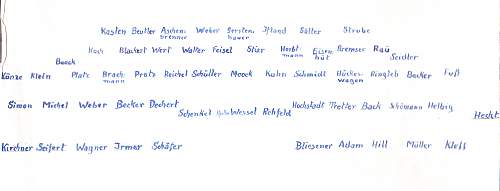 Kasten Beutler Aschenbrenner Weber Gerstenhauer Iffland Sälter Strube
Koch Blackert Wert Walter Feisel Stür Horstmann Eisenhüt Bremser Rau Seidler
Baack
Künze Klein Platz Brachmann Protz Reichel Schüller Moock Kuhn Schmidt Hückeswagen Ringleb Becker Fuß
Simon Michel Weber Becker Dechert Schenkel Wessel Rehfeld Hochstadt Tretter Back Schömann Helbig Hecht
Kirchner Seifert Wagner Irmer Schäfer Bliesener Adam Hill Müller Kleff